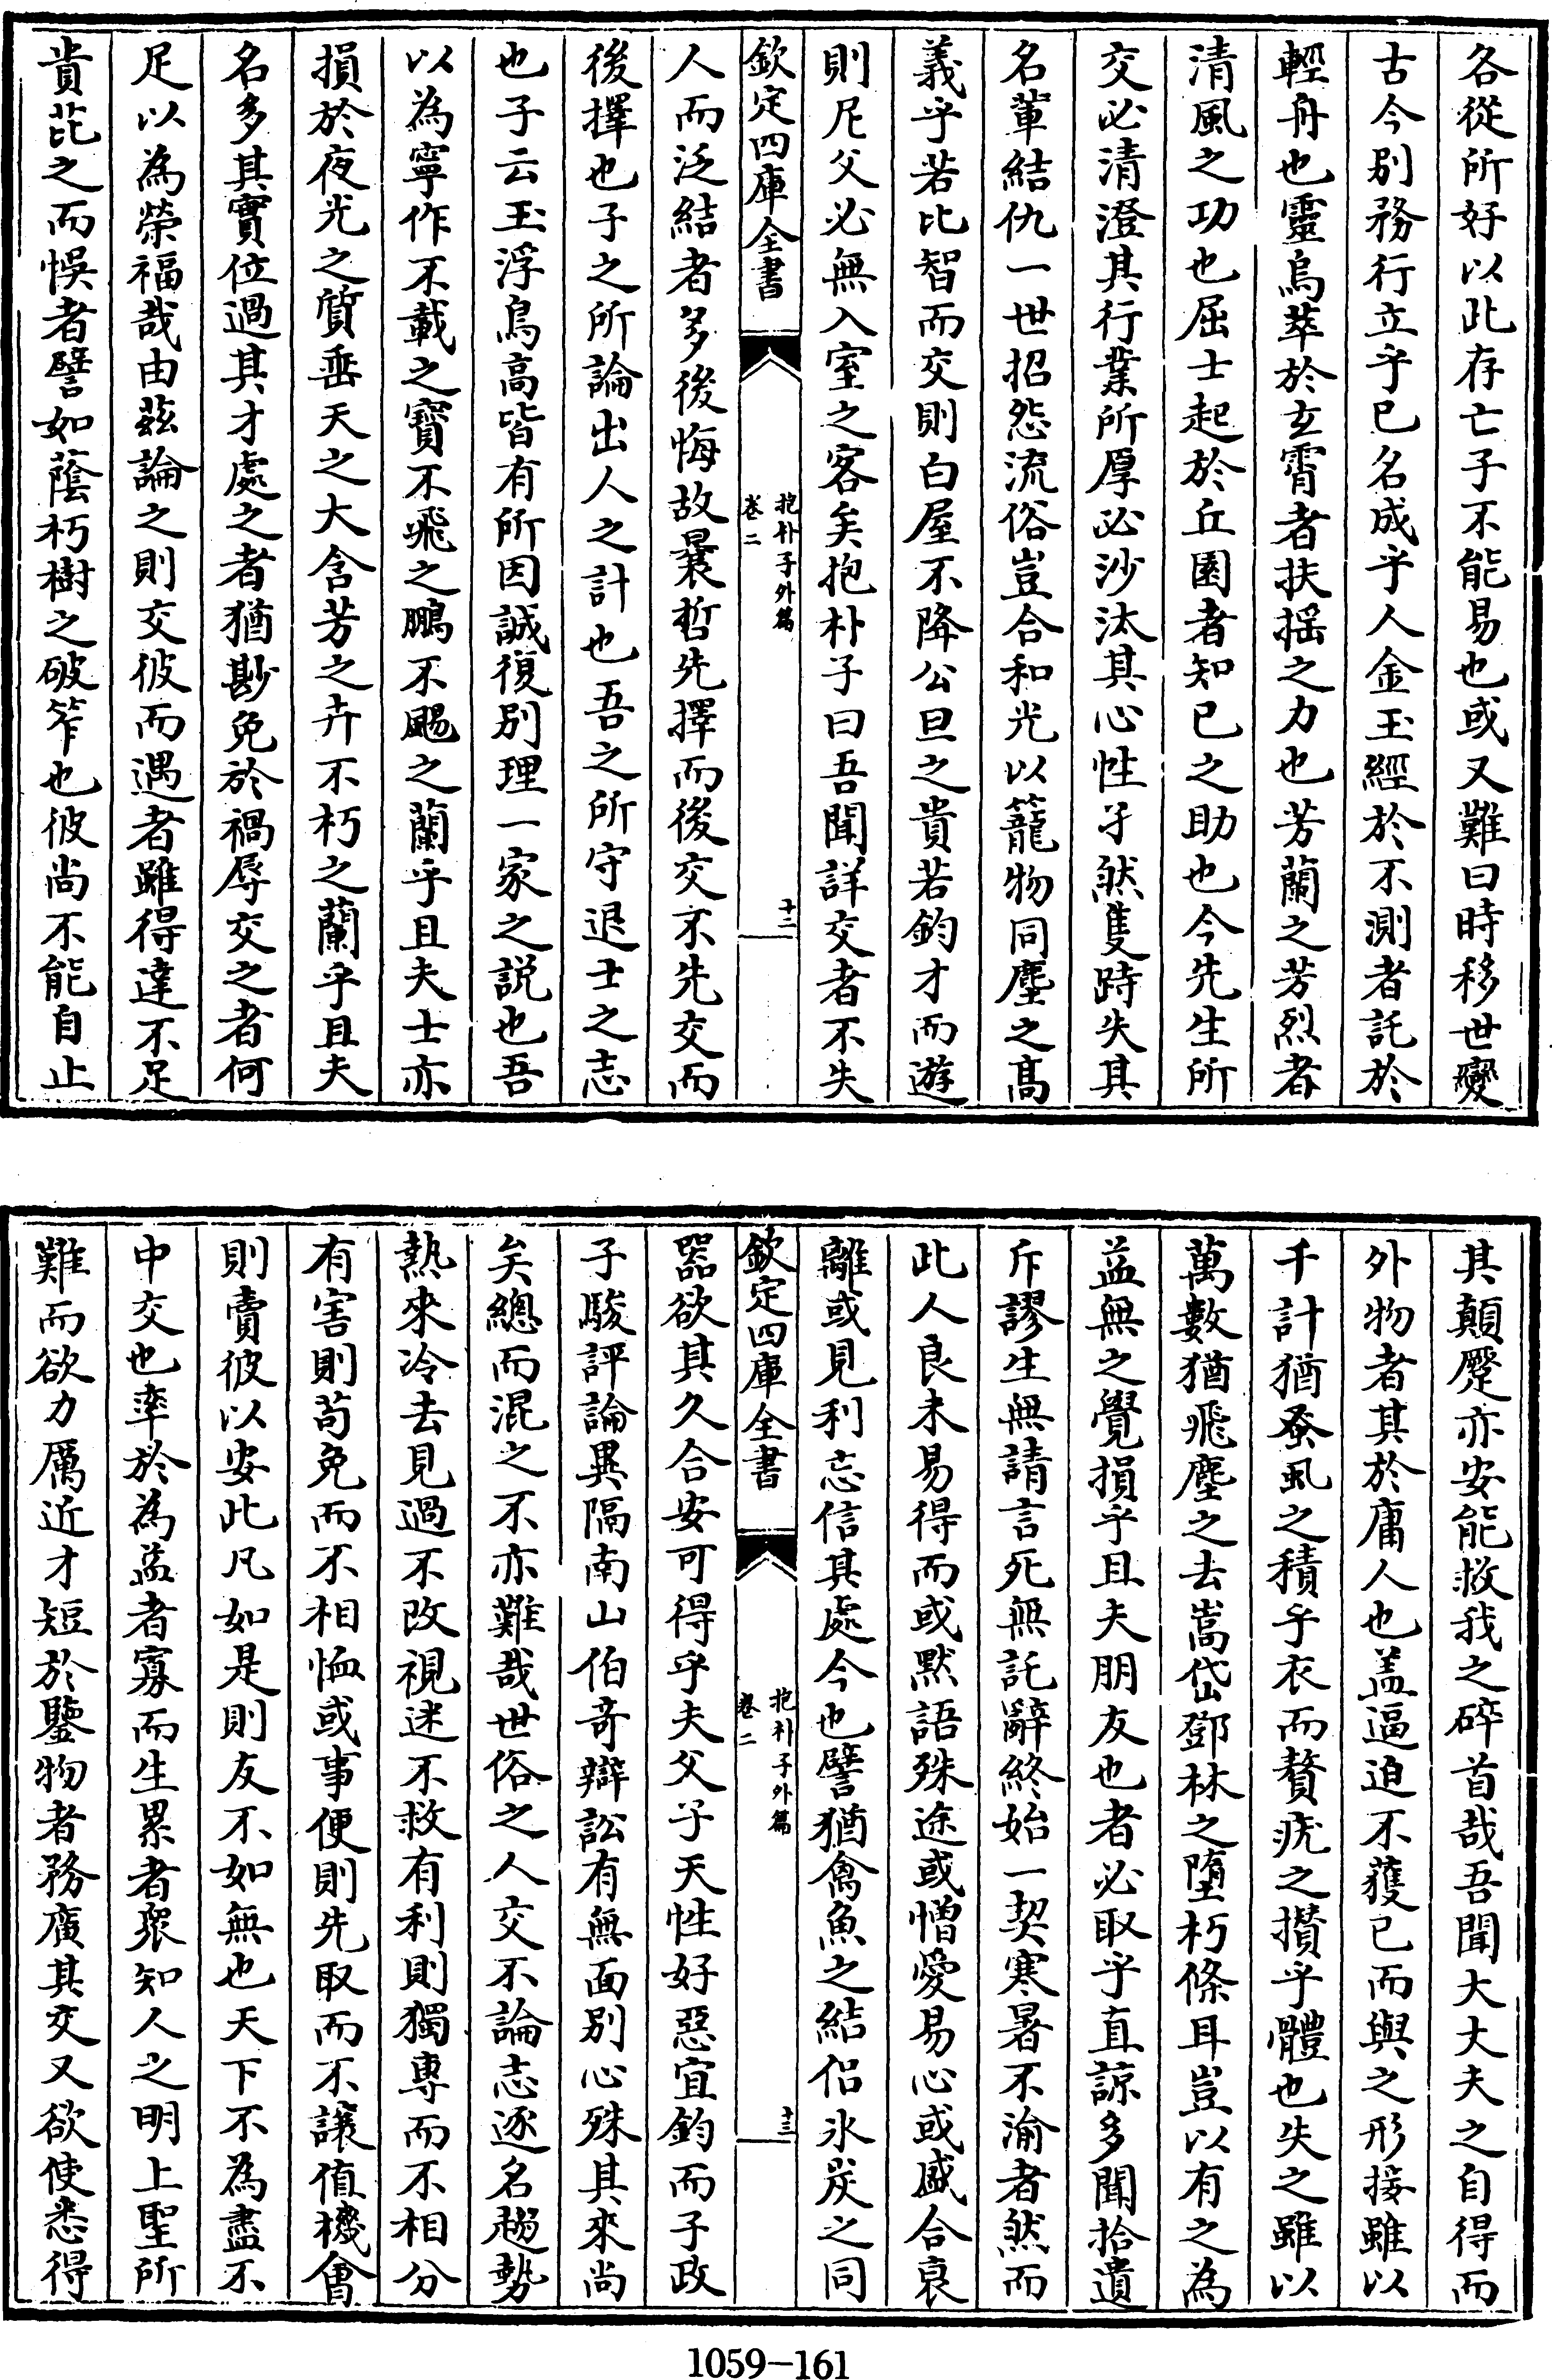 各從所好以此存亡子不能易也或又難曰時移世變
古今别務行立乎已名成乎人金玉經於不測者託於
輕舟也靈烏萃於玄霄者扶摇之力也芳蘭之芳烈者
清風之功也屈士起於丘園者知已之助也今先生所
交必清澄其行業所厚必沙汰其心性孑然隻跱失其
名輩結仇一世招怨流俗豈合和光以籠物同塵之髙
義乎若比智而交則白屋不降公旦之貴若鈞才而遊
則尼父必無入室之客矣抱朴子曰吾聞詳交者不失
欽定四庫全書
抱朴子外篇
卷二
十二
人而泛結者多後悔故曩哲先擇而後交不先交而
後擇也子之所論出人之計也吾之所守退士之志
也子云玉浮鳥高皆有所因誠復别理一家之説也吾
以為寧作不載之寳不飛之鵬不颺之蘭乎且夫士亦
損於夜光之質垂天之大含芳之卉不朽之蘭乎且夫
名多其實位過其才處之者猶尠免於禍辱交之者何
足以為榮福哉由兹論之則交彼而遇者雖得達不足
貴芘之而悞者譬如蔭朽樹之破笮也彼尚不能自止
其顛蹷亦安能救我之碎首哉吾聞大大夫之自得而
外物者其於庸人也盖逼迫不獲已而與之形接雖以
千計猶蚤虱之積乎衣而贅疣之攅乎體也失之雖以
萬數猶飛塵之去嵩岱鄧林之墮朽條耳豈以有之為
益無之覺損乎且夫朋友也者必取乎直諒多聞拾遺
斥謬生無請言死無託辭終始一契寒暑不渝者然而
此人良未易得而或黙語殊途或憎愛易心或盛合衰
離或見利忘信其處今也譬猶禽魚之結侣氷炭之同
欽定四庫全書
抱朴子外篇
卷二
十三
器欲其久合安可得乎夫父子天性好惡宜鈞而子政
子駿評論異隔南山伯奇辯訟有無面别心殊其來尚
矣總而混之不亦難哉世俗之人交不論志逐名趨勢
熱來冷去見過不改視迷不救有利則獨專而不相分
有害則苟免而不相恤或事便則先取而不讓值機㑹
則賣彼以安此凡如是則友不如無也天下不為盡不
中交也率於為益者寡而生累者衆知人之明上聖所
難而欲力厲近才短於鑒物者務廣其交又欲使悉得
1059-161